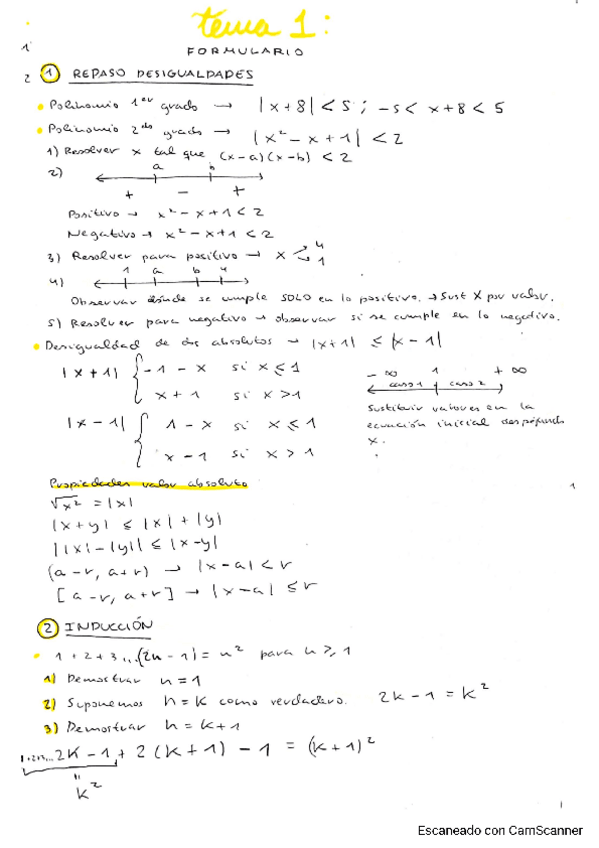 tema 1:
FORMULARIO
① REPASO DESIGUALDADES
• Polinomio 1er grado → |x+8| < 5 ; -5 < x+8 < 5
• Polinomio 2do grado → |x² - x + 1| < 2
1) Resolver x tal que (x-a)(x-b) < 2
2) a b
+ - +
Positivo → x² - x + 1 < 2
Negativo → x² - x + 1 < 2
3) Resolver para positivo → x 4 1
4) 1 a b 4
Observar dónde se cumple SOLO en lo positivo. → Sust X por valor.
5) Resolver para negativo → observar si se cumple en lo negativo.
• Desigualdad de dos absolutos → |x+1| ≤ |x-1|
|x+1| { -1 - x si x ≤ 1
x + 1 si x > 1
- ∞ 1 + ∞
caso 1 caso 2
|x-1| { 1 - x si x ≤ 1
x - 1 si x > 1
Sustituir valores en la
ecuación inicial
x.
Propiedades valor absoluto
√x² = |x|
|x+y| ≤ |x| + |y|
||x| - |y|| ≤ |x-y|
(a-r, a+r) → |x-a| < r
[a-r, a+r] → |x-a| ≤ r
② INDUCCIÓN
• 1+2+3...(2n-1) = n² para n ≥ 1
1) Demostrar n = 1
2) Suponemos n = k como verdadero. 2k - 1 = k²
3) Demostrar n = k+1
1+2+3... 2k - 1 + 2(k+1) - 1 = (k+1)²
"
k²
Escaneado con CamScanner